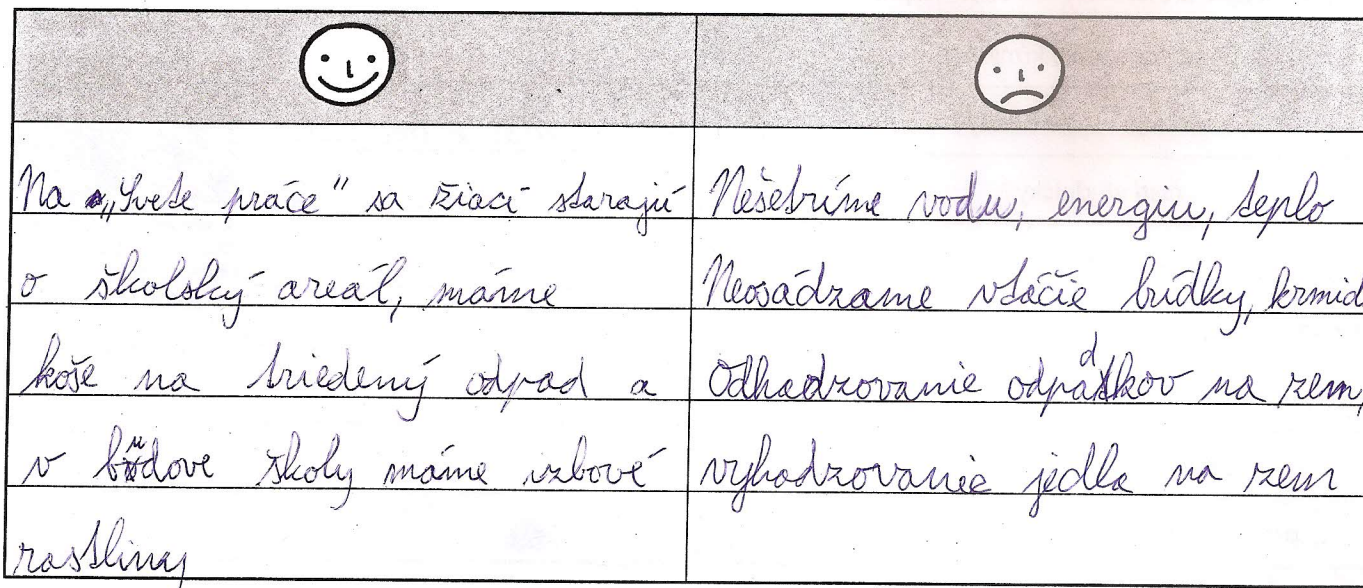 Na „Svete práce" sa žiaci starajú
o školský areál, máme
koše na triedený odpad a
v budove školy máme izbové
rastliny
Nešetríme vodu, energiu, teplo
Neosádzame vtáčie búdky, krmid
Odhadzovanie odpadkov na zem,
vyhadzovanie jedla na zem